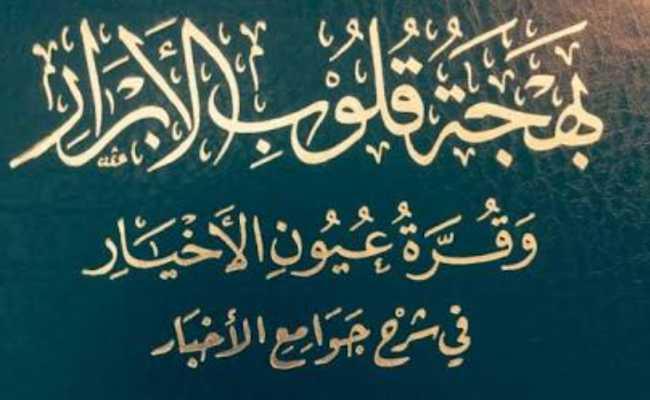 بَهْجَةُ قُلُوْبِ الْأَبْرَارِ
وَقُرَّةُ عُيُونِ الْأَخْيَارِ
فِي شَرْحِ جَوَامِعِ الْأَخْبَارِ